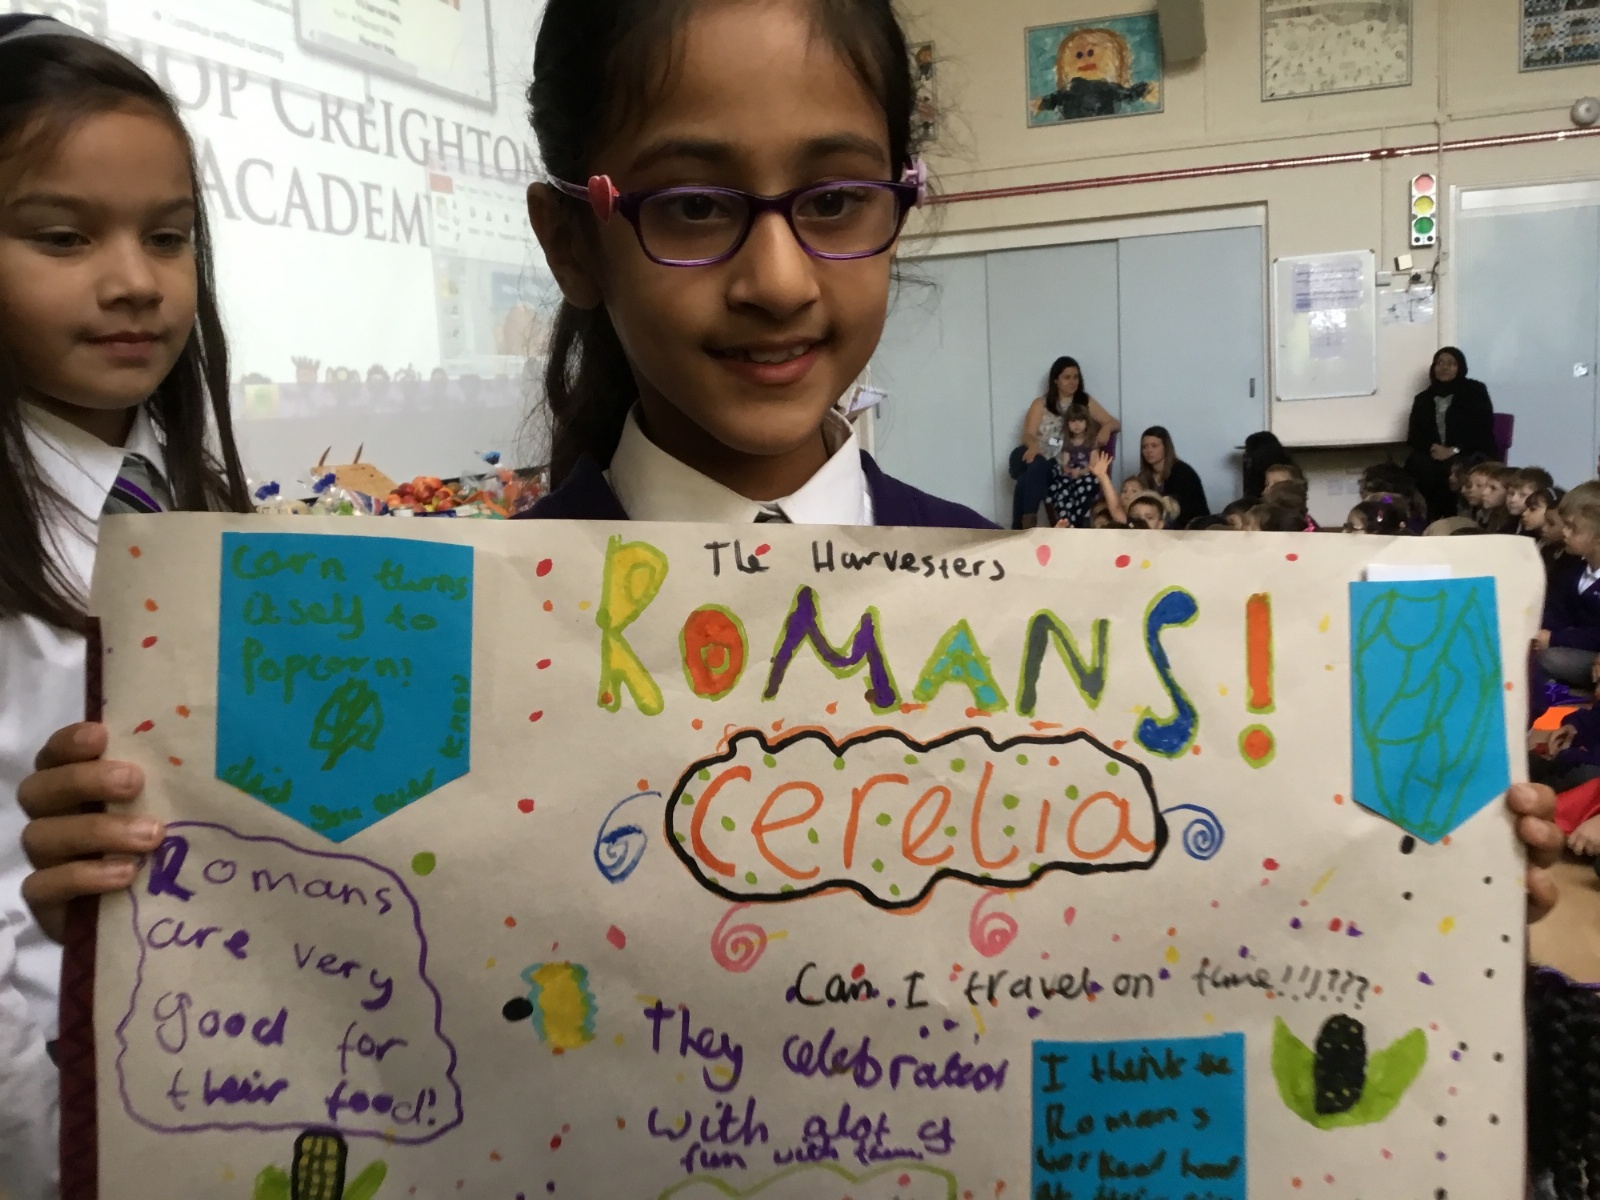 OP CREIGHTON
ACADEM
The Harvesters
ROMANS!
cerelia
corn turns
itself to
Popcorn!
did you ever know
Romans
are very
good for
their food!
Can I travel on time!!!???
They celebration
with alot of
fun with them
I think the
Romans
worked hard